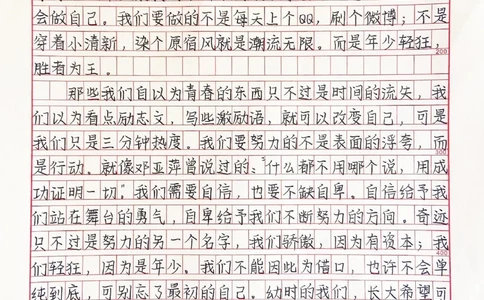 会做自己。我们要做的不是每天上个QQ，刷个微博；不是
穿着小清新，染个原宿风就是潮流无限。而是年少轻狂，
200
胜者为王。
那些我们自以为青春的东西只不过是时间的流矢，我
们以为看点励志文，写些激励语，就可以改变自己，可是
我们只是三分钟热度。我们要努力的不是表面的浮夸，而
300
是行动。就像邓亚萍曾说过的：“什么都不用哪个说，用成
功证明一切。”我们需要自信，也要不缺自卑。自信给予我
们站在舞台的勇气，自卑给予我们不断努力的方向。奇迹
只不过是努力的另一个名字，我们骄傲，因为有资本；我
400
们轻狂，因为是年少。我们不能因此为借口，也许不会单
纯到底，可别忘了最初的自己。幼时的我们，长大希望可